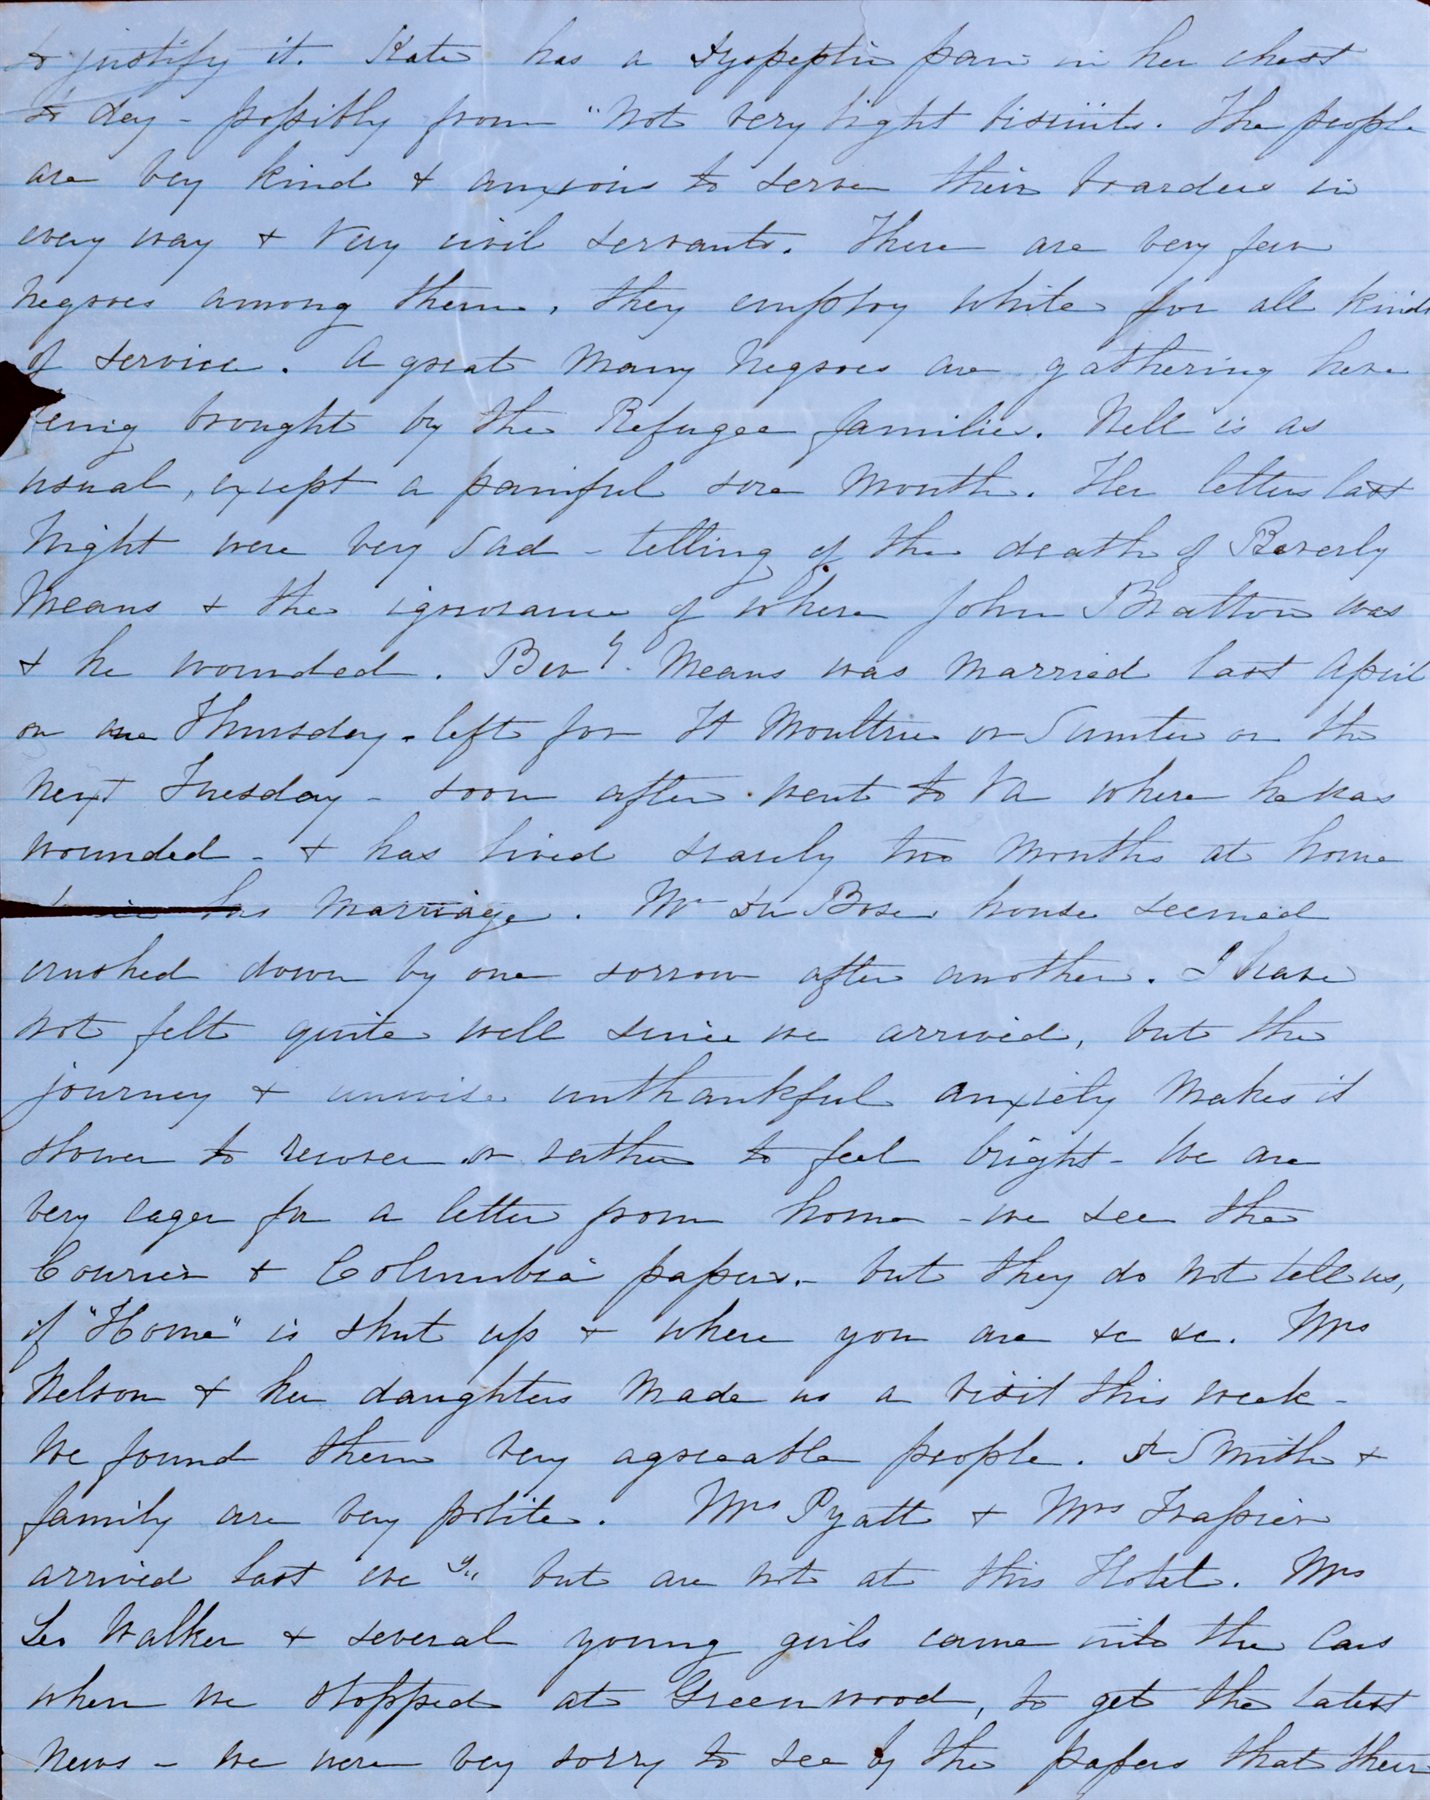 to justify it. Kate has a dyspeptic pain in her chest
to day - possibly from "not very light biscuits. The people
are very kind & anxious to serve their boarders in
every way & very civil servants. There are very few
negroes among them, they employ white for all kinds
of service. A great many negroes are gathering here
being brought by the Refugee families. Nell is as
usual, except a painful sore mouth. Her letters last
night were very sad - telling of the death of Beverly
Means & the ignorance of where John Bratton was
& he wounded. Bevy. Means was married last April
on one Thursday - left for Ft Moultrie or Sumter on the
next Tuesday - soon after went to Va where he was
wounded - & has lived scarcely two months at home
since his marriage. Mr Du Bose house seemed
crushed down by one sorrow after another. I have
not felt quite well since we arrived, but the
journey & unwise unthankful anxiety makes it
slower to recover or rather to feel bright - We are
very eager for a letter from home - we see the
Courier & Columbia papers - but they do not tell us,
if "Home" is shut up & where you are &c &c. Mrs
Nelson & her daughters made us a visit this week -
We found them very agreeable people. Dr Smith &
family are very polite. Mrs Pyatt & Mrs Trapier
arrived last eveg. but are not at this Hotel. Mrs
Leo Walker & several young girls came into the Cars
when we stopped at Greenwood, to get the latest
news - we were very sorry to see by the papers that their